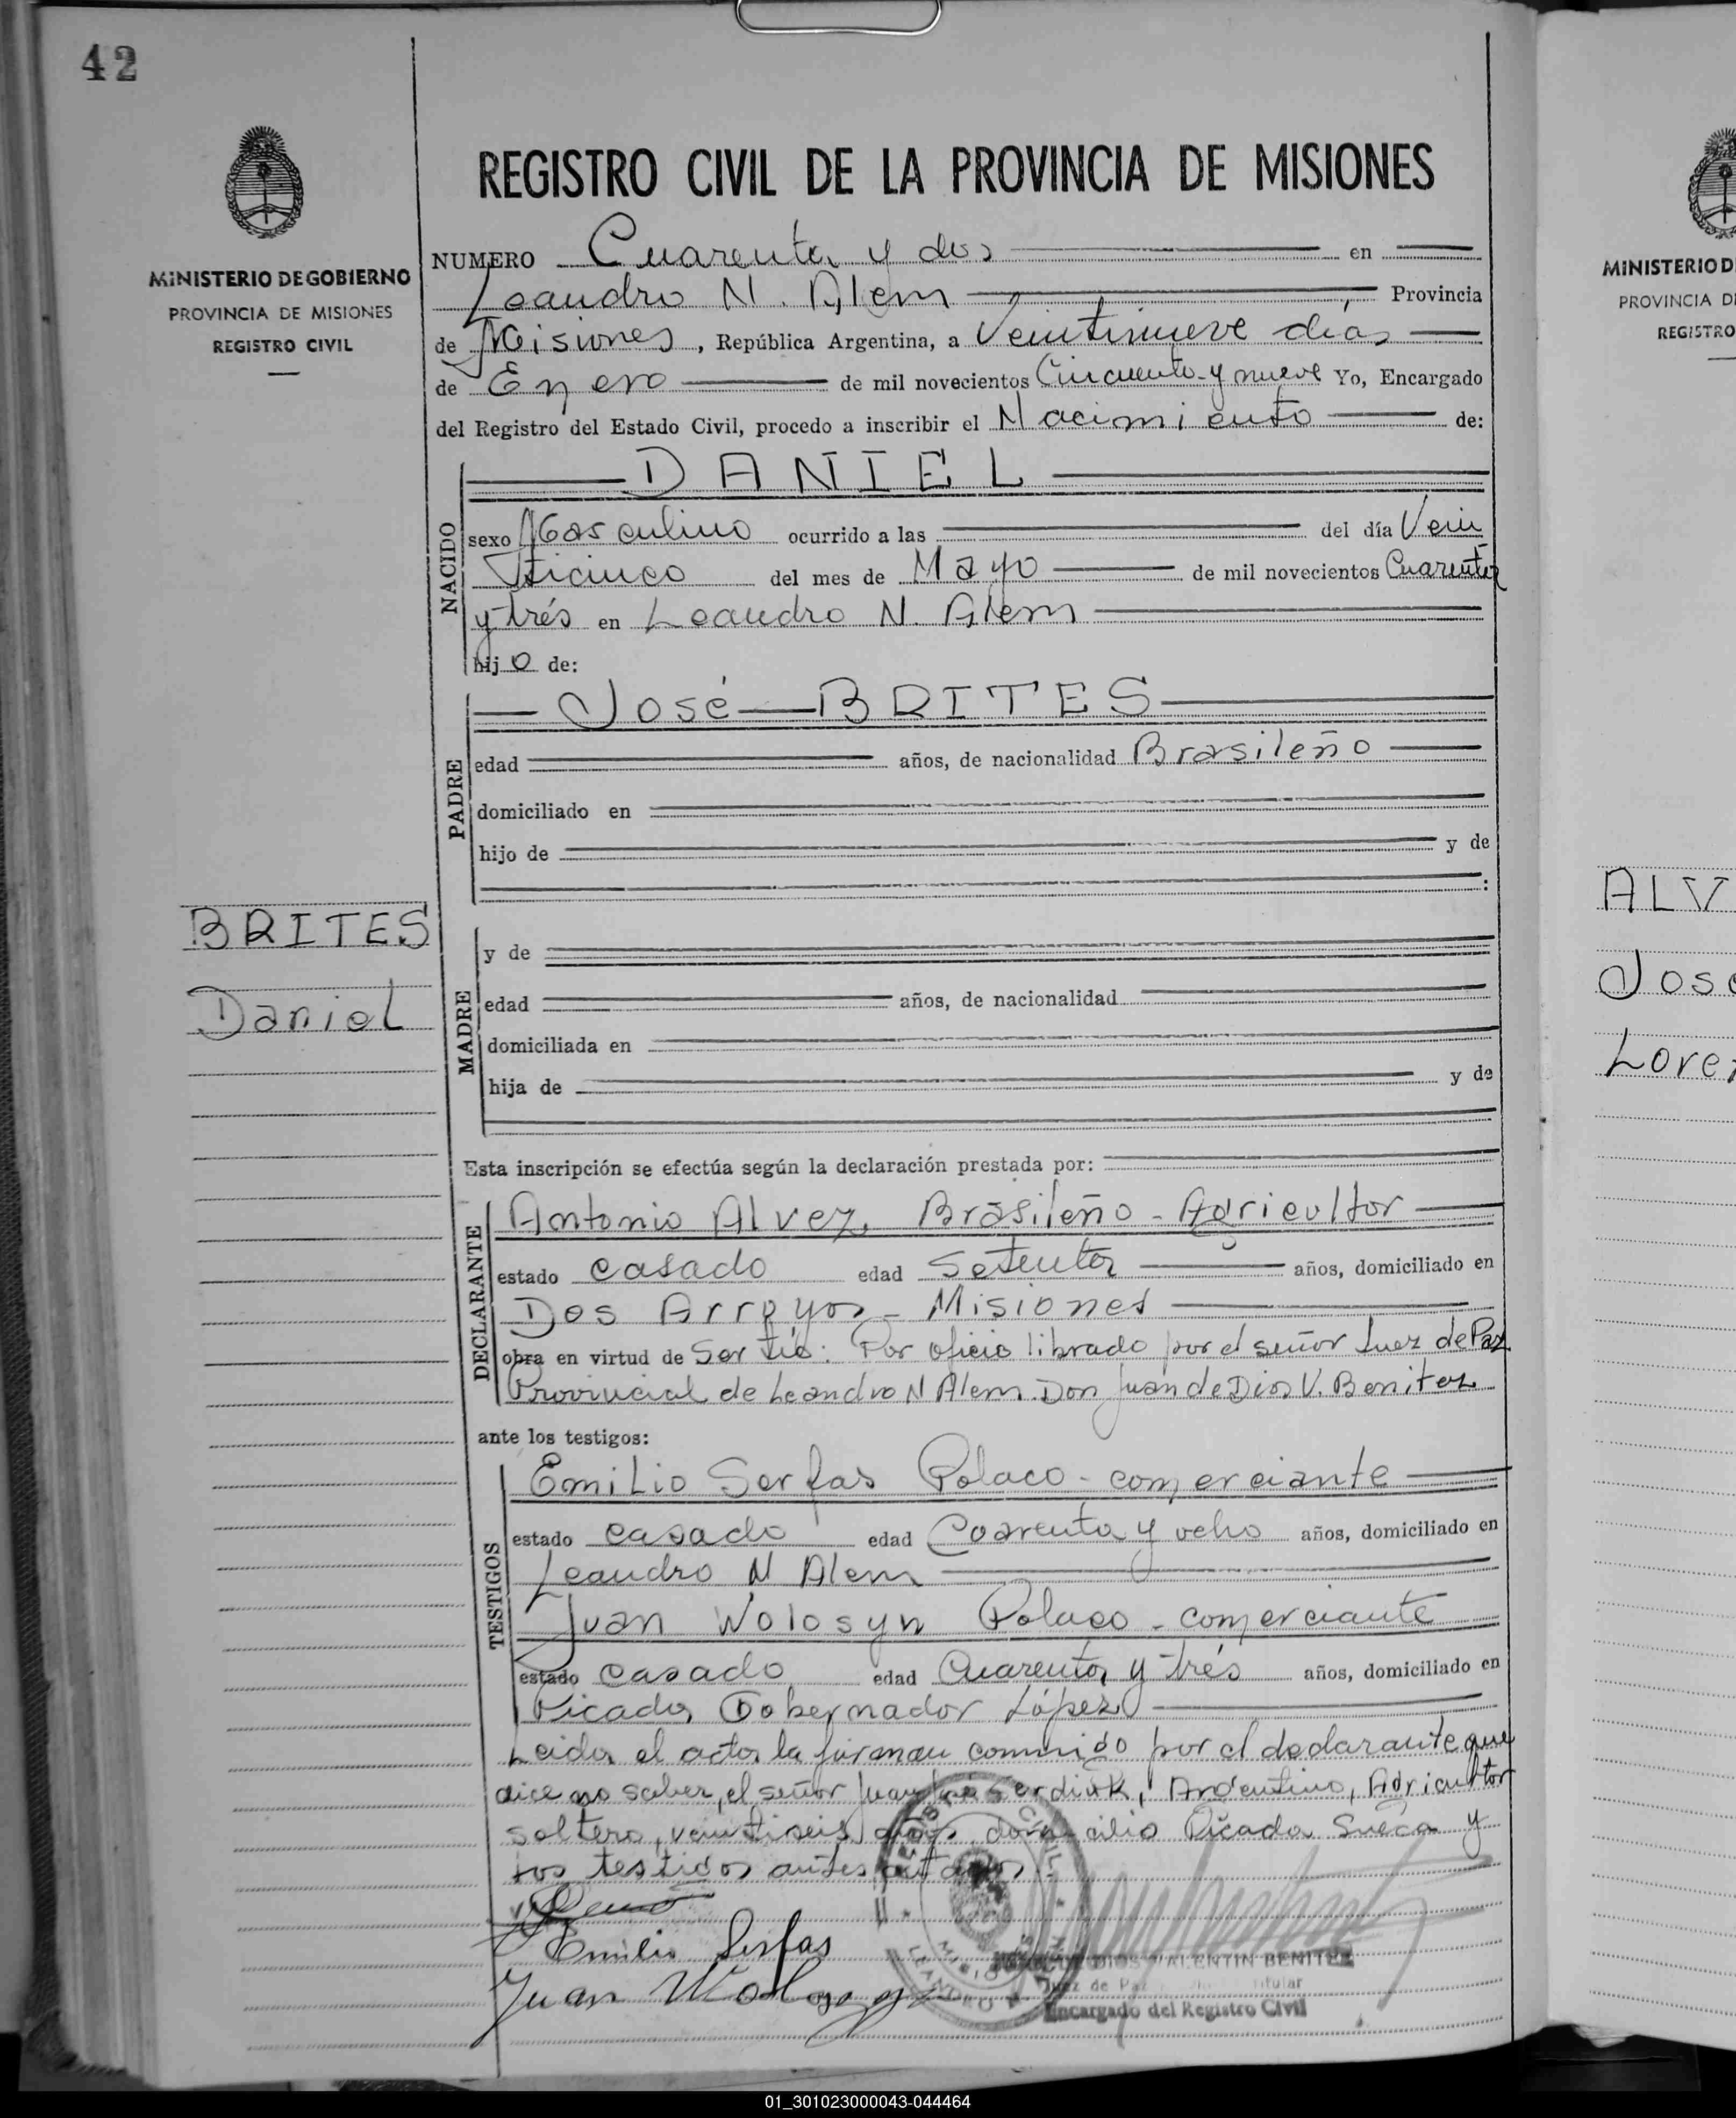 42
MINISTERIO DE GOBIERNO
PROVINCIA DE MISIONES
REGISTRO CIVIL
BRITES
Daniel
REGISTRO CIVIL DE LA PROVINCIA DE MISIONES
NUMERO Cuarenta y dos en
Leandro N. Alem Provincia
de Misiones, República Argentina, a Veintinueve días
de Enero de mil novecientos Cincuenta y nueve Yo, Encargado
del Registro del Estado Civil, procedo a inscribir el Nacimiento de:
NACIDO
DANIEL
sexo Masculino ocurrido a las del día Vein
ticinco del mes de Mayo de mil novecientos Cuarenta
y trés en Leandro N. Alem
hijo de:
PADRE
José BRITES
edad años, de nacionalidad Brasileño
domiciliado en
hijo de y de
:
MADRE
y de
edad años, de nacionalidad
domiciliada en
hija de y de
Esta inscripción se efectúa según la declaración prestada por:
DECLARANTE
Antonio Alvez, Brasileño - Agricultor
estado casado edad Setenta años, domiciliado en
Dos Arroyos - Misiones
obra en virtud de Ser tío: Por oficio librado por el señor Juez de Paz
Provincial de Leandro N Alem Don Juan de Dios V. Benitez
ante los testigos:
TESTIGOS
Emilio Serfas Polaco - comerciante
estado casado edad Coarenta y ocho años, domiciliado en
Leandro N Alem
Juan Wolosyn Polaco - comerciante
estado casado edad Cuarenta y trés años, domiciliado en
Picada Gobernador López
Leida el acta la firman conmigo por el declarante que
dice no saber, el señor Juan Argentino, Agricultor
soltero, veintiseis años, domicilio Picada Sueca y
los testigos antes citados
Emilio Serfas
Juan Wolosyn
JUAN DE DIOS VALENTIN BENITEZ
Juez de Paz Titular
Encargado del Registro Civil
MINISTERIO D
PROVINCIA D
REGISTRO
ALV
José
Lore
01_301023000043-044464